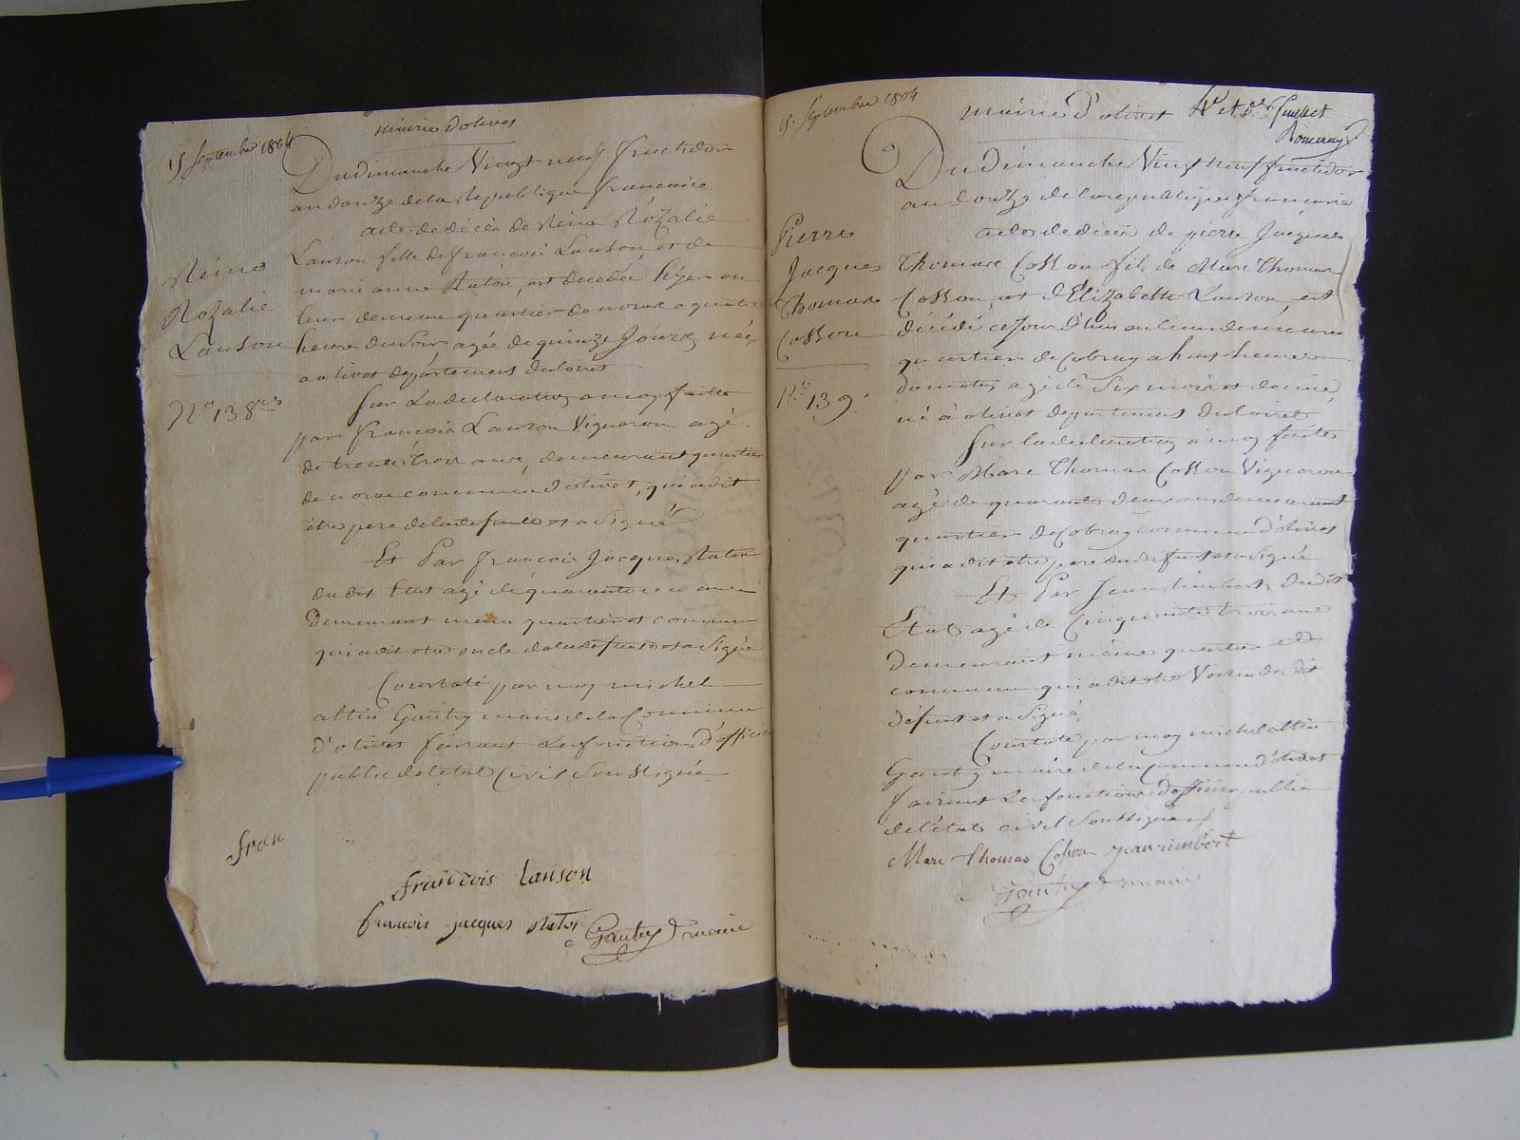 15 Septembre 1804
mairie d'olivet
Du dimanche Vingt neuf fructidor
an douze de la Republique francaise
acte de décès de Reine Rozalie
Lanson fille de francois Lanson et de
marie anne Ratoi, est decedée hyer au
heure du soir agée de quinze Jours néé
a olivet departement du loiret
Reine
Rozalie
Lanson
No 138
Sur la declaration a moy faitte
par francois Lanson Vigneron agé
de trente trois ans, demeurant quartier
de commune d'olivet, qui a dit
être pere de la defunte et a Signé
Et Par francois Jacques
du dit Etat agé de quarante ans
Demeurant meme quartier et commune
qui a dit etre oncle de la defunte et a Signé
Constaté par moy michel
altin Gautry maire de la Commune
d'olivet faisant les fonctions d'officier
public de l'etat Civil Soussigné
fran
francois Lanson
francois jacques
Gautry maire
15 Septembre 1804
mairie d'olivet
Du dimanche Vingt neuf fructidor
an douze de la republique francaise
acte de décès de pierre Jacques
Thomas Cosson fils de Marc Thomas
Cosson et d'Elizabette Lanson est
décédé ce Jour d'huy au lieu demeure
quartier de Cobray a huit heures
du matin agé de Six mois et demie
né à olivet departement du loiret
Pierre
Jacques
Thomas
Cosson
No 139
Sur la declaration à moy faitte
par Marc Thomas Cosson Vigneron
agé de quarante deux ans demeurant
quartier de Cobray commune d'olivet
qui a dit etre pere du defunt et a Signé
Et Par Jean rimbert du dit
Etat agé de Cinquante trois ans
demeurant même quartier et
commune qui a dit etre Voisin du dit
défunt et a Signé
Constaté par moy michel altin
Gautry maire de la Commune d'olivet
faisant les fonctions d'officier public
de l'état civil Soussigné
Marc Thomas Cosson jean rimbert
Gautry maire